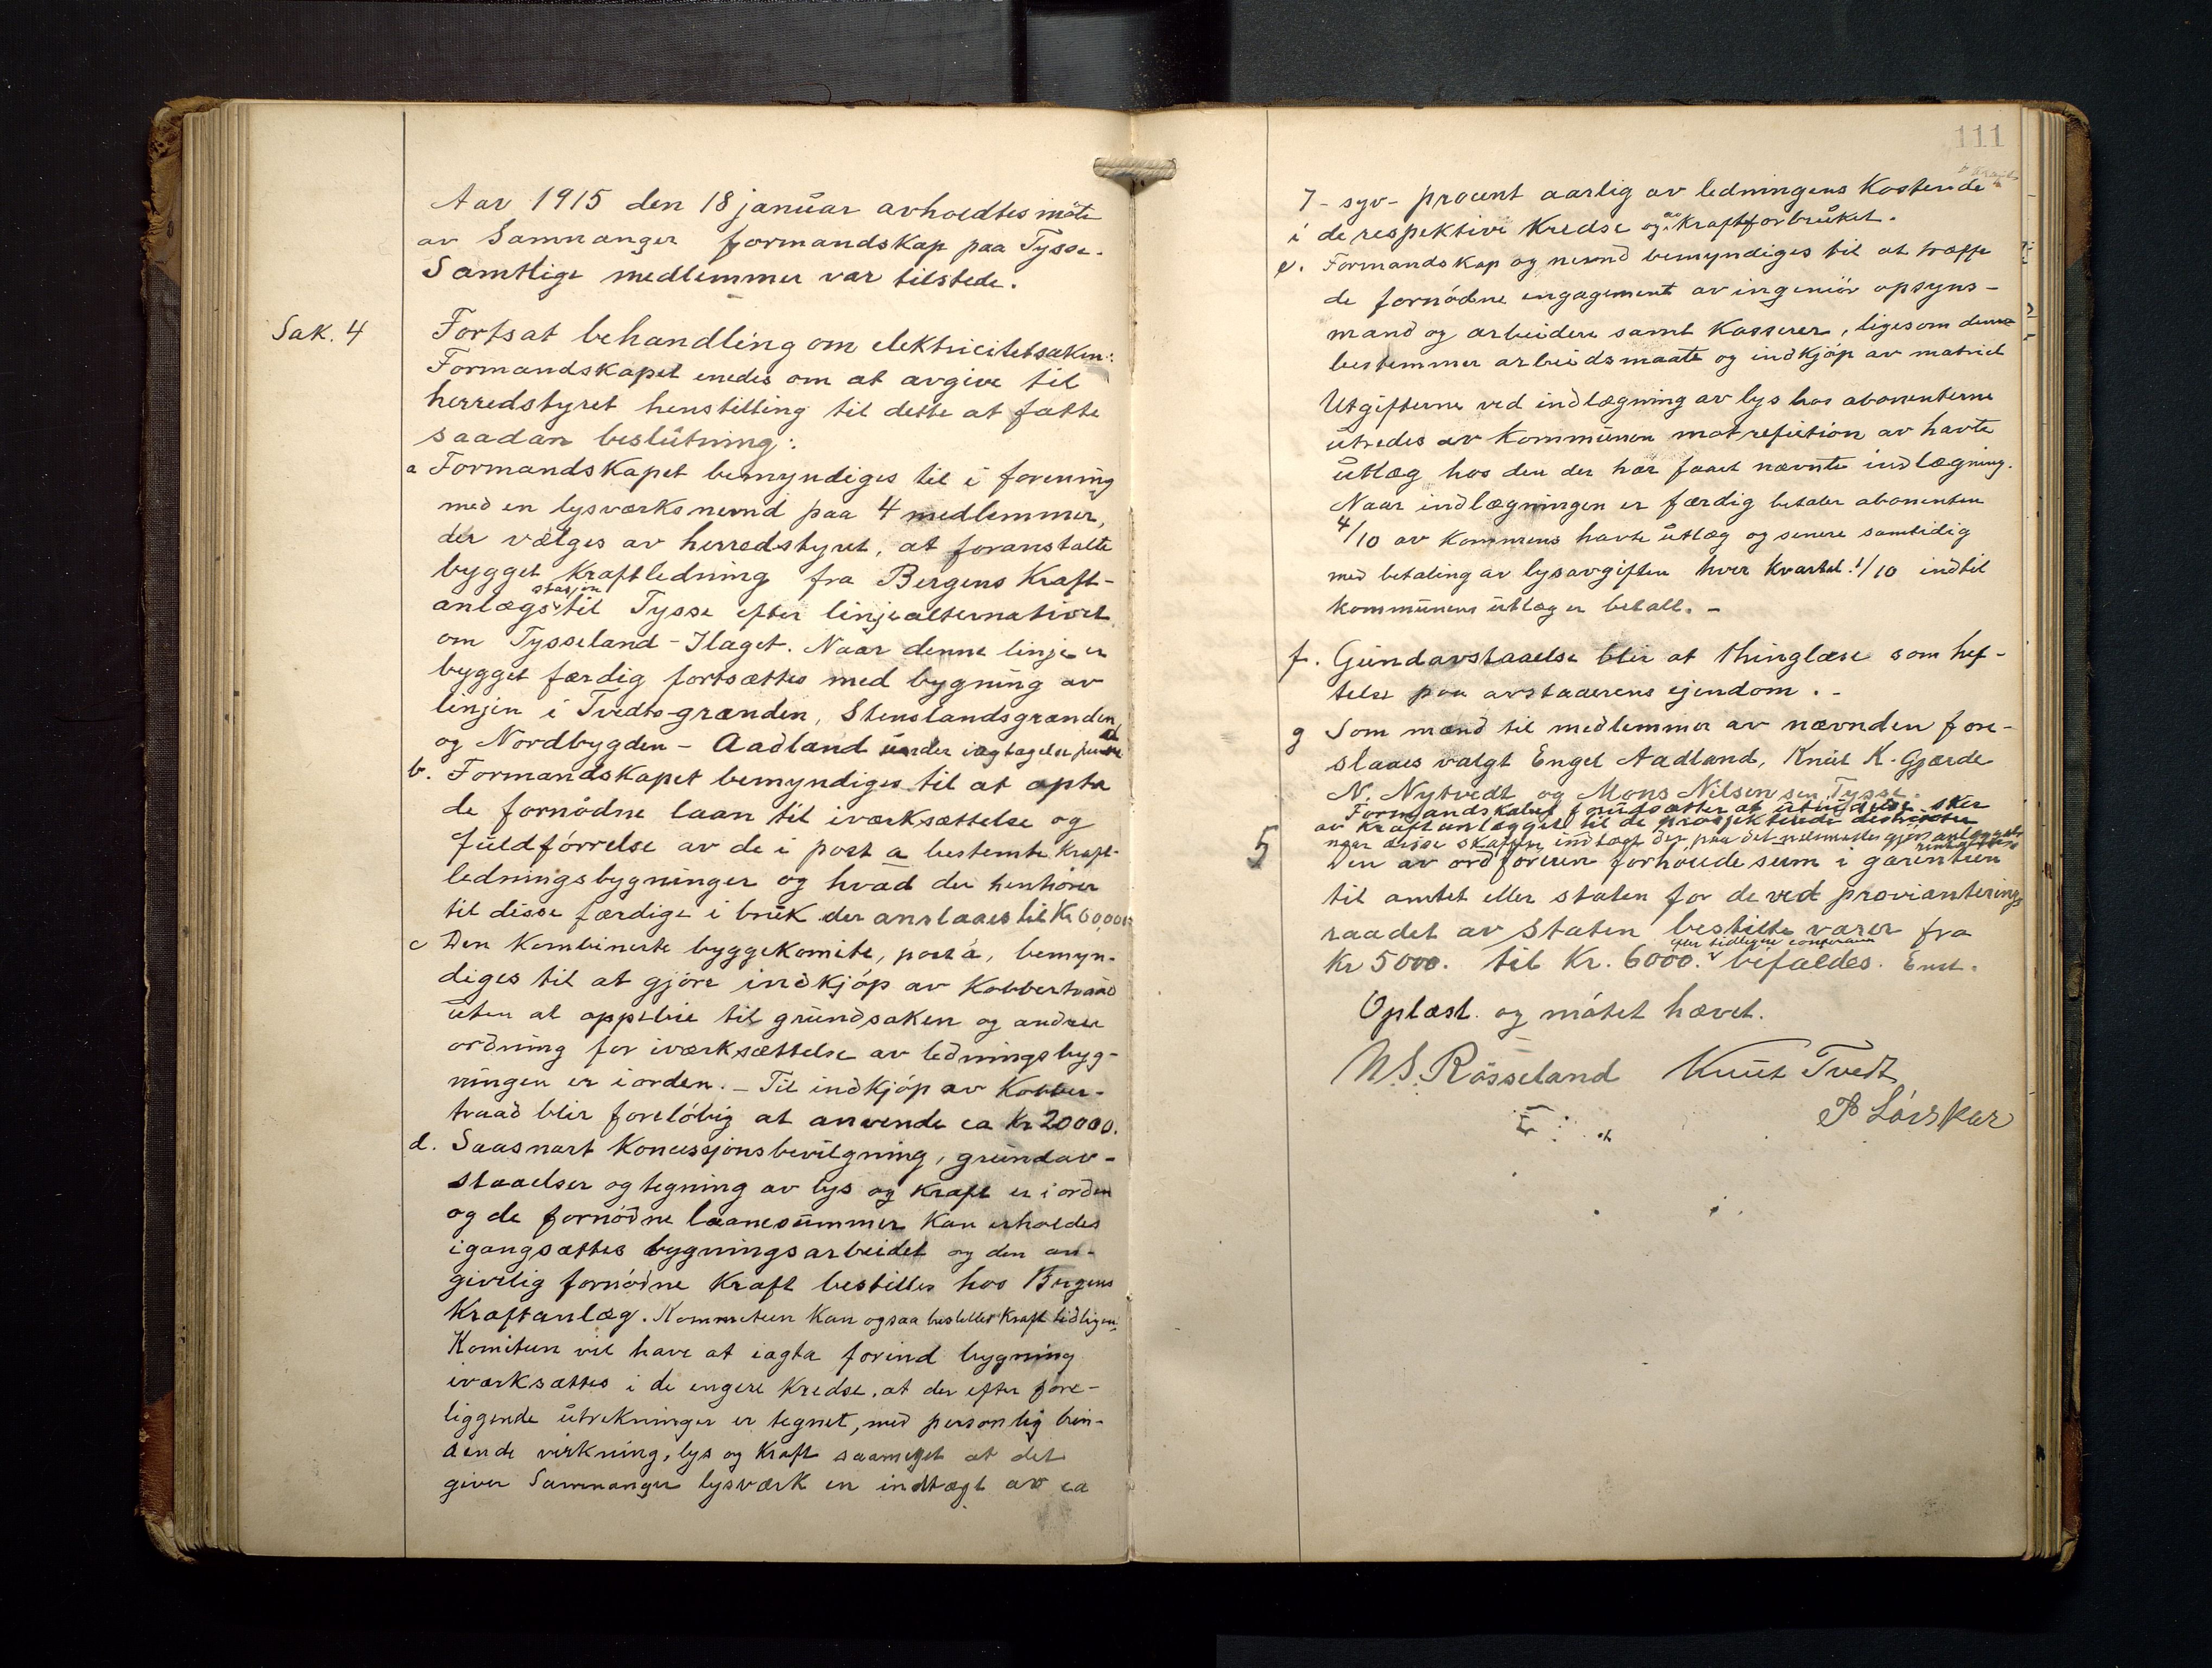 Aar 1915 den 18 januar avholdtes möte
av Samnanger formandskap paa Tysse.
Samtlige medlemmer var tilstede.
Sak. 4
Fortsat behandling om elektricitetsaken:
Formandskapet enedes om at avgive til
herredstyret henstilling til dette at fatte
saadan beslutning:
a Formandskapet bemyndiges til i forening
med en lysværksnevnd paa 4 medlemmer,
der vælges av herredstyret, at foranstalte
bygget kraftledning fra Bergens Kraft-
anlægs stasjon til Tysse efter linjealternativet
om Tysseland-Ilaget. Naar denne linje er
bygget færdig fortsættes med bygning av
linjen i Tvedts-grænden, Stenslandsgrænden,
og Nordbygden - Aadland under iagtagelse
b. Formandskapet bemyndiges til at opta
de fornödne laan til iværksættelse og
fuldförrelse av de i post a bestemte kraft-
ledningsbygninger og hvad der henhörer
til disse færdige i bruk der anslaaes til Kr 60,000
c Den kombinerte byggekomite, post a, bemyn-
diges til at gjöre indkjöp av Kobbertraad
uten at oppebie til grundsaken og anden
ordning for iværksættelse av ledningsbyg-
ningen er i orden. - Til indkjöp av Kobber-
traad blir forelöbig at anvende ca Kr 20000.
d. Saasnart Koncessjonsbevilgning, grundav-
staaelser og tegning av lys og Kraft er i orden
og de fornödne laanesummer kan erholdes
igangsættes bygningsarbeidet og den an-
givelig fornödne Kraft bestilles hos Bergens
Kraftanlæg. Kommiteen kan ogsaa bestille Kraft tidligere.
Komiteen vil have at iagta forind bygning
iværksættes i de engere Kredse, at der efter fore-
liggende utrekninger er tegnet, med personlig bin-
dende virkning, lys og Kraft saameget at det
giver Samnanger lysværk en indtægt av ca
111
7 - syv - procent aarlig av ledningens Kostende
i de respektive Kredse og av Kraftforbruket.
e. Formandskap og nevnd bemyndiges til at træffe
de fornödne engagement av ingeniör opsyns-
mand og arbeidere samt Kasserer, ligesom denne
bestemmer arbeidsmaate og indkjöp av matriel
Utgifterne ved indlægning av lys hos abonenterne
utredes av Kommunen mot refution av havte
utlæg hos den der har faaet nævnte indlægning.
Naar indlægningen er færdig betaler abonenten
4/10 av Kommens havte utlæg og senere samtidig
med betaling av lysavgiften hver kvartal 1/10 indtil
kommunens utlæg er betalt. -
f. Grundavstaaelse blir at thinglæse som hef-
telse paa avstaaerens ejendom. -
g Som mænd til medlemmer av nævnden fore-
slaaes valgt Engel Aadland, Knut K. Gjærde
N. Nytvedt og Mons Nilsen sen. Tysse.
Formandskabet forudsætter at utvidelse sker
av kraftanlægget til de prosjekterede distrikter
naar disse skaffer indtægt der paa det nærmeste gjör anlægget
5
Den av ordföreren forhöiede sum i garentien
til amtet eller staten for de ved provianterings
raadet av Staten bestilte varer fra
Kr 5000. til Kr. 6000. efter tidligere conferanse bifaldes. Enst.
Oplæst og mötet hævet.
N. S. Rösseland Knut Tvedt
P Lövskar